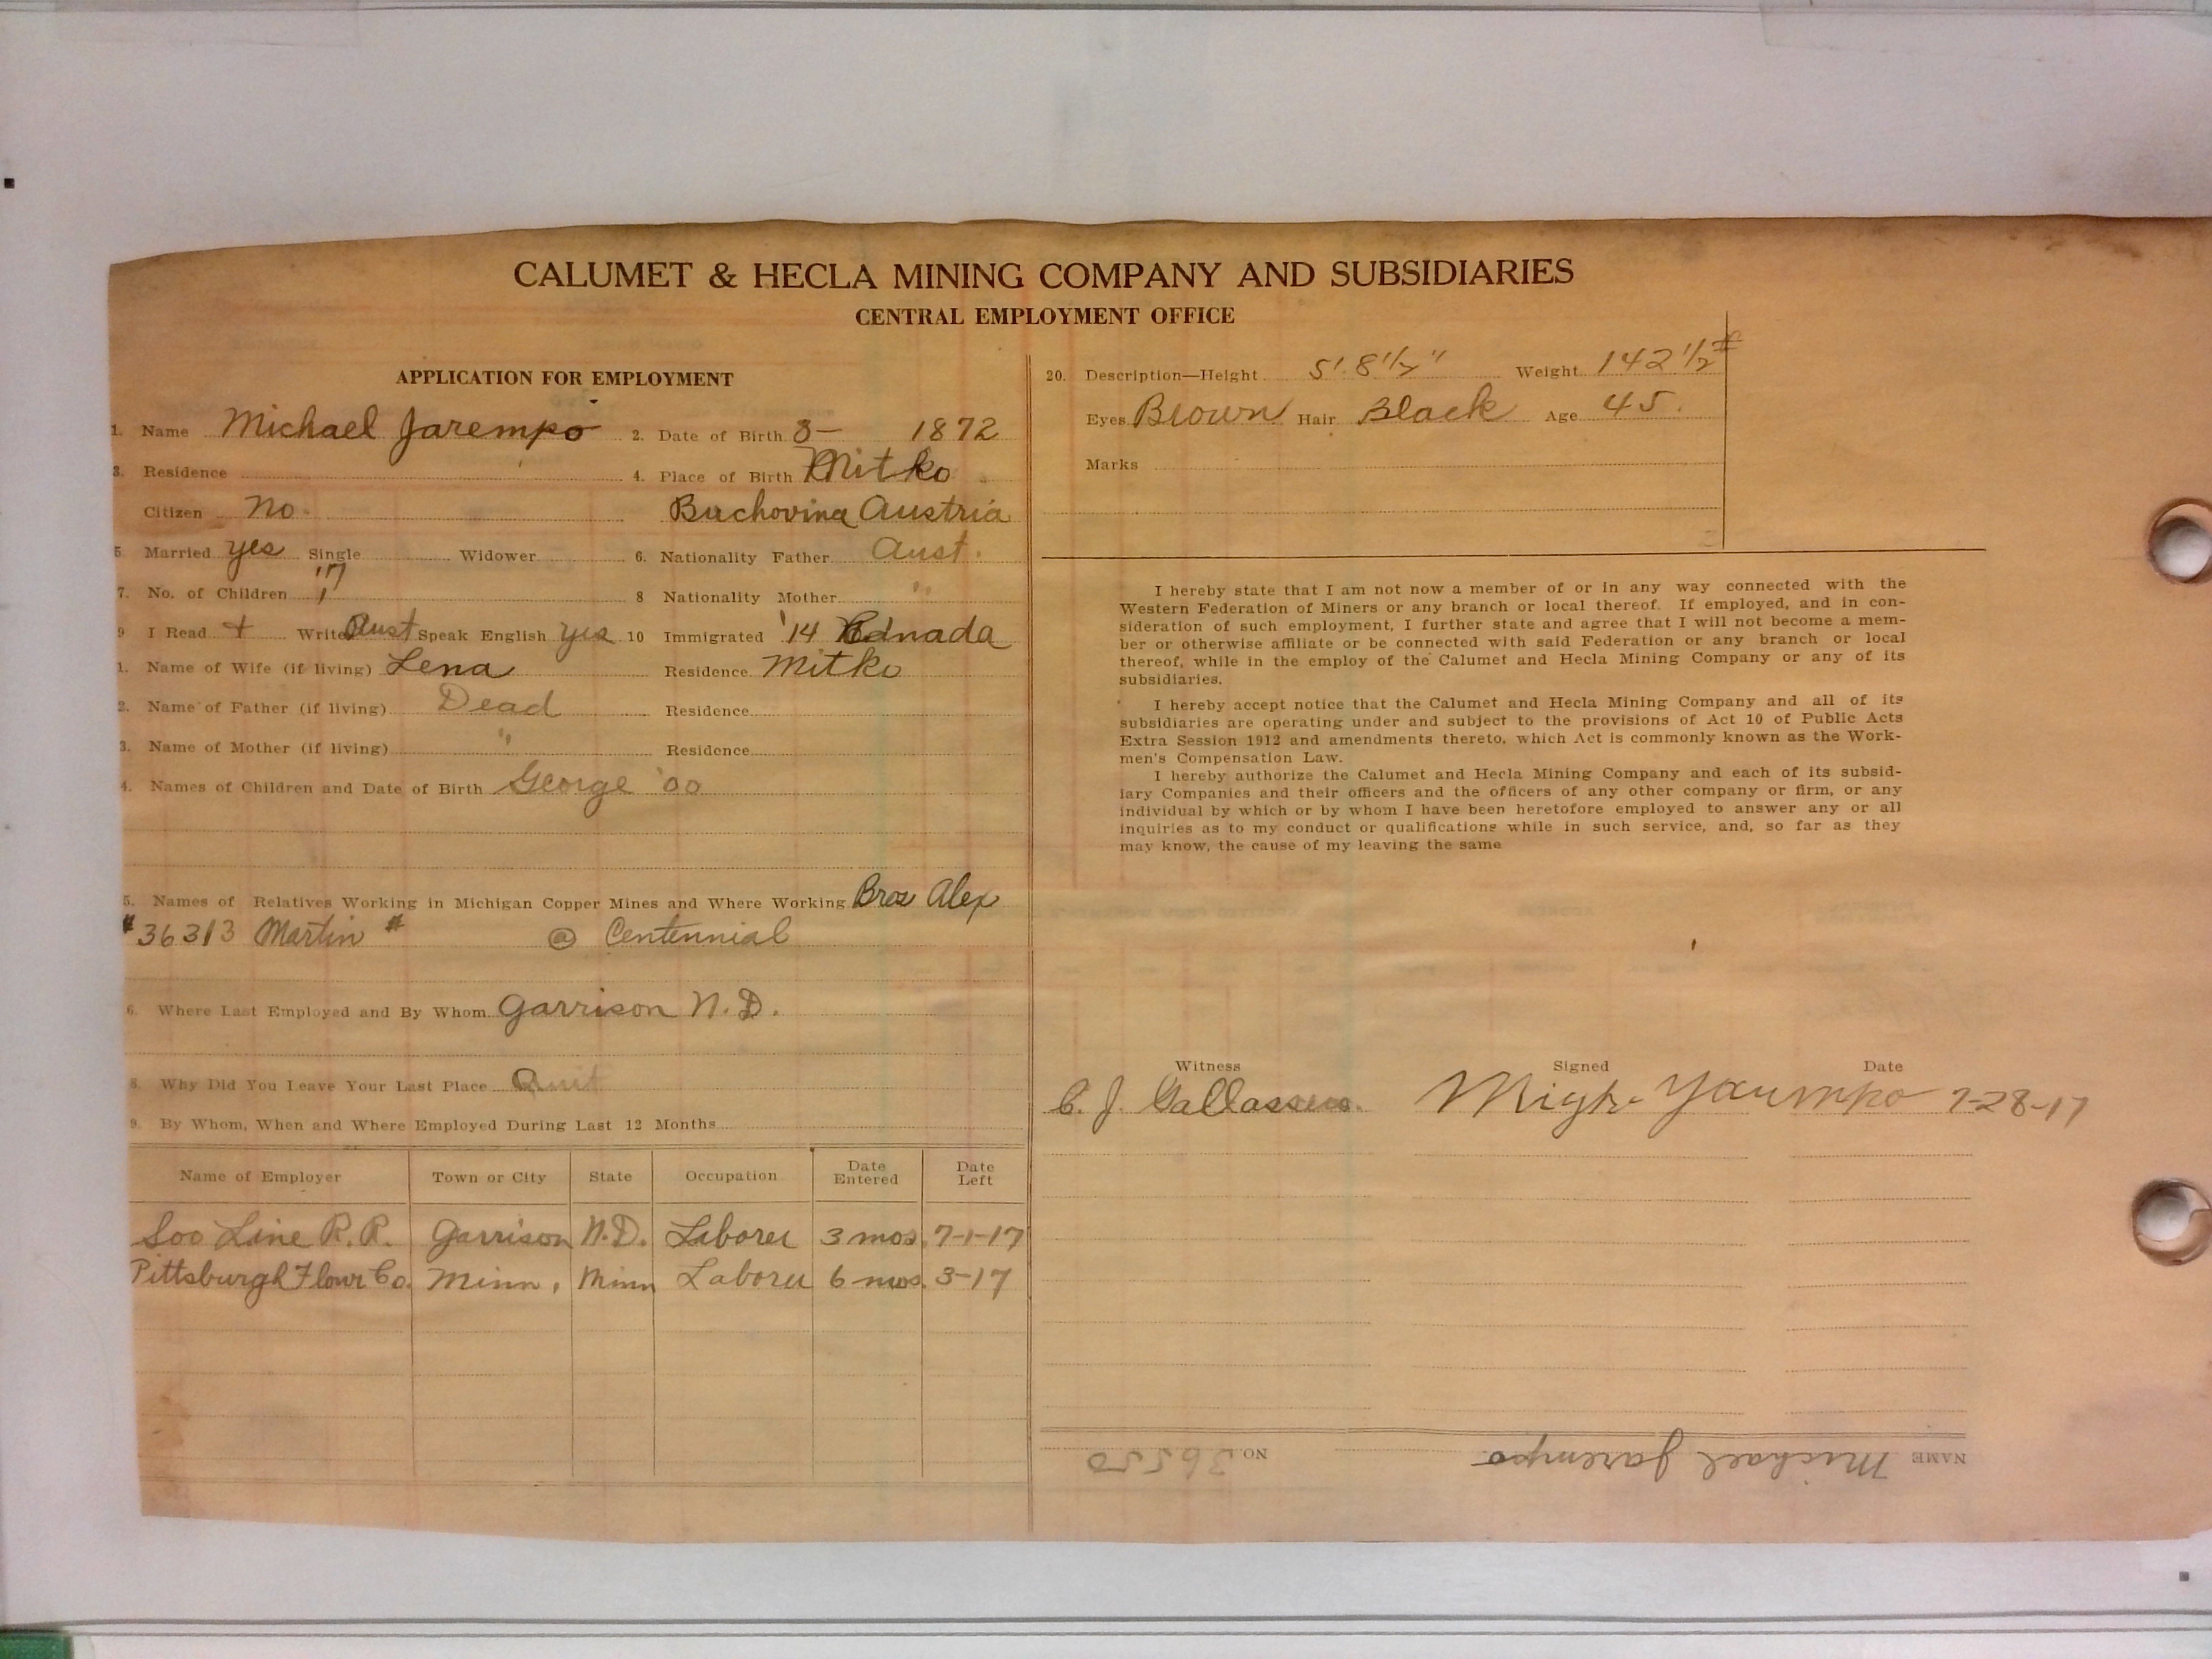 CALUMET & HECLA MINING COMPANY AND SUBSIDIARIES
CENTRAL EMPLOYMENT OFFICE
APPLICATION FOR EMPLOYMENT
1. Name Michael Jarempo 2. Date of Birth 8- 1872
3. Residence 4. Place of Birth Mitko
Citizen No. Buchovina Austria
5. Married yes Single Widower 6. Nationality Father Aust.
7. No. of Children 8 Nationality Mother "
9 I Read + Write Aust Speak English yes 10 Immigrated '14 Canada
1. Name of Wife (if living) Lena Residence Mitko
2. Name of Father (if living) Dead Residence
3. Name of Mother (if living) " Residence
4. Names of Children and Date of Birth George '00
5. Names of Relatives Working in Michigan Copper Mines and Where Working Bros Alex
#36313 Martin # @ Centennial
6. Where Last Employed and By Whom Garrison N.D.
8. Why Did You Leave Your Last Place Quit
9. By Whom, When and Where Employed During Last 12 Months
Name of Employer Town or City State Occupation Date Entered Date Left
Soo Line R.R. Garrison N.D. Laborer 3 mos. 7-1-17
Pittsburgh Flour Co. Minn. Minn Laborer 6 mos. 3-17
20. Description—Height 5' 8 1/2" Weight 142 1/2 #
Eyes Brown Hair Black Age 45.
Marks
I hereby state that I am not now a member of or in any way connected with the
Western Federation of Miners or any branch or local thereof. If employed, and in con-
sideration of such employment, I further state and agree that I will not become a mem-
ber or otherwise affiliate or be connected with said Federation or any branch or local
thereof, while in the employ of the Calumet and Hecla Mining Company or any of its
subsidiaries.
I hereby accept notice that the Calumet and Hecla Mining Company and all of its
subsidiaries are operating under and subject to the provisions of Act 10 of Public Acts
Extra Session 1912 and amendments thereto, which Act is commonly known as the Work-
men's Compensation Law.
I hereby authorize the Calumet and Hecla Mining Company and each of its subsid-
iary Companies and their officers and the officers of any other company or firm, or any
individual by which or by whom I have been heretofore employed to answer any or all
inquiries as to my conduct or qualifications while in such service, and, so far as they
may know, the cause of my leaving the same
Witness Signed Date
C. J. 7-28-17
NAME Michael Jarempo NO. 36550